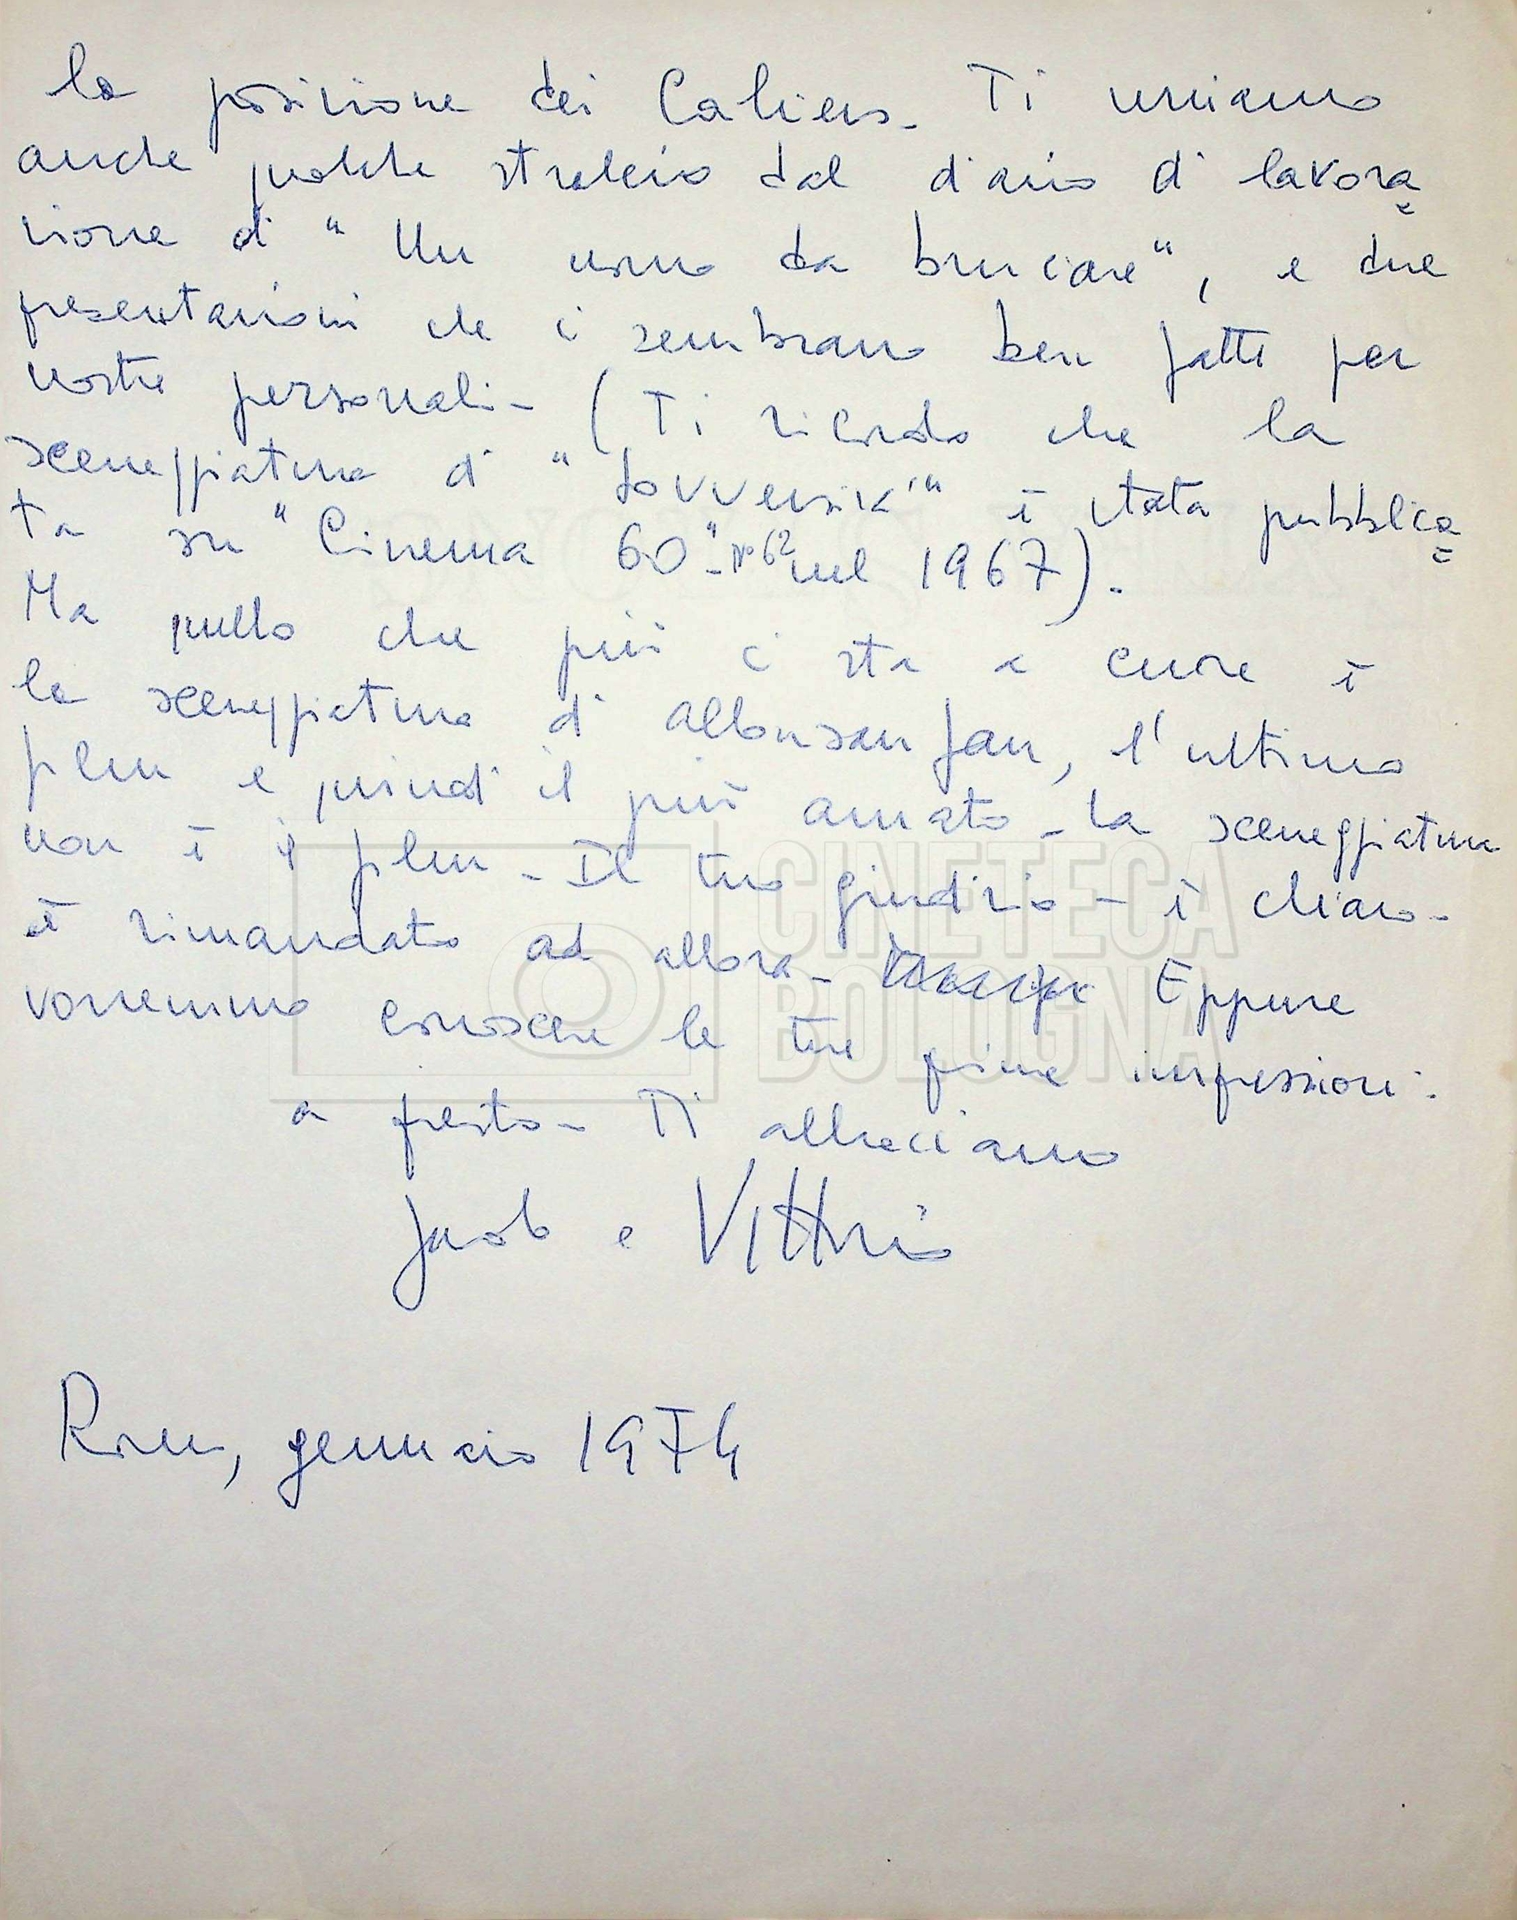 la posizione dei Cahiers. Ti uniamo
anche qualche stralcio dal diario di lavora
zione di "Un uomo da bruciare", e due
presentazioni che ci sembrano ben fatte per
nostre personali - (Ti ricordo che la
sceneggiatura di "Sovversivi" è stata pubblica
ta su "Cinema 60" - N° 62 nel 1967).
Ma quello che più ci sta a cuore è
la sceneggiatura di Allonsanfan, l'ultimo
film e quindi il più amato - La sceneggiatura
non è il film - Il tuo giudizio - è chiaro -
è rimandato ad allora - Eppure
vorremmo conoscere le tue prime impressioni.
a presto - Ti abbracciamo
e Vittorio
Roma, gennaio 1974
CINETECA
BOLOGNA